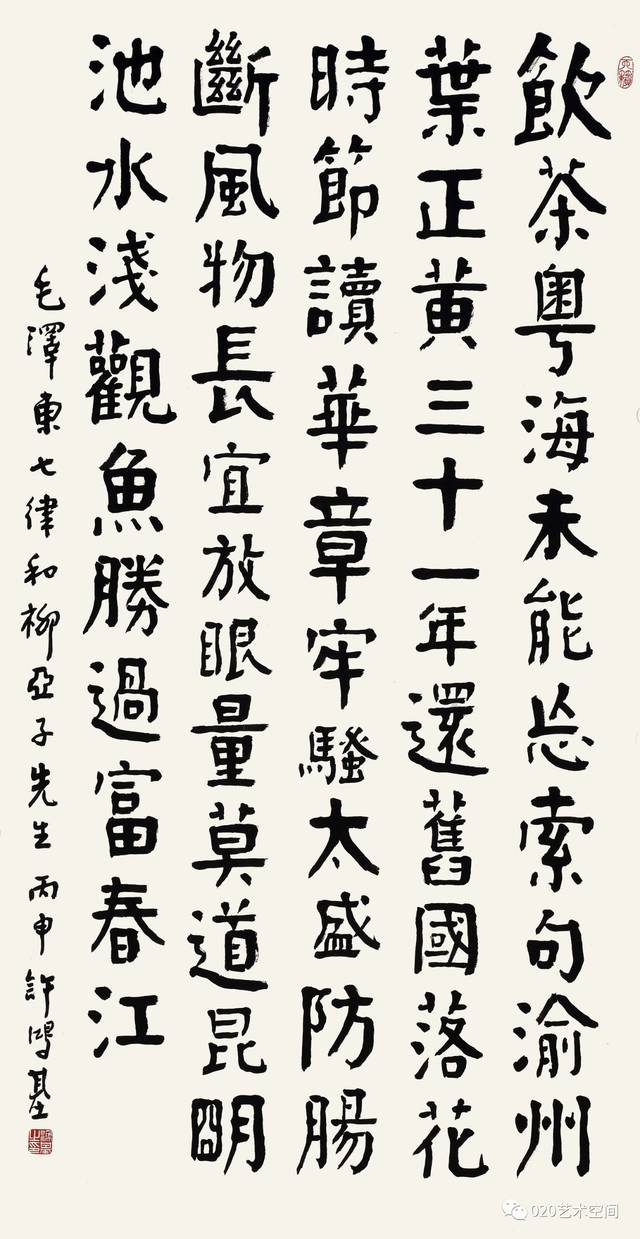 飲茶粵海未能忘索句渝州
葉正黃三十一年還舊國落花
時節讀華章牢騷太盛防腸
斷風物長宜放眼量莫道昆明
池水淺觀魚勝過富春江
毛澤東七律和柳亞子先生 丙申 許鴻基
020艺术空间